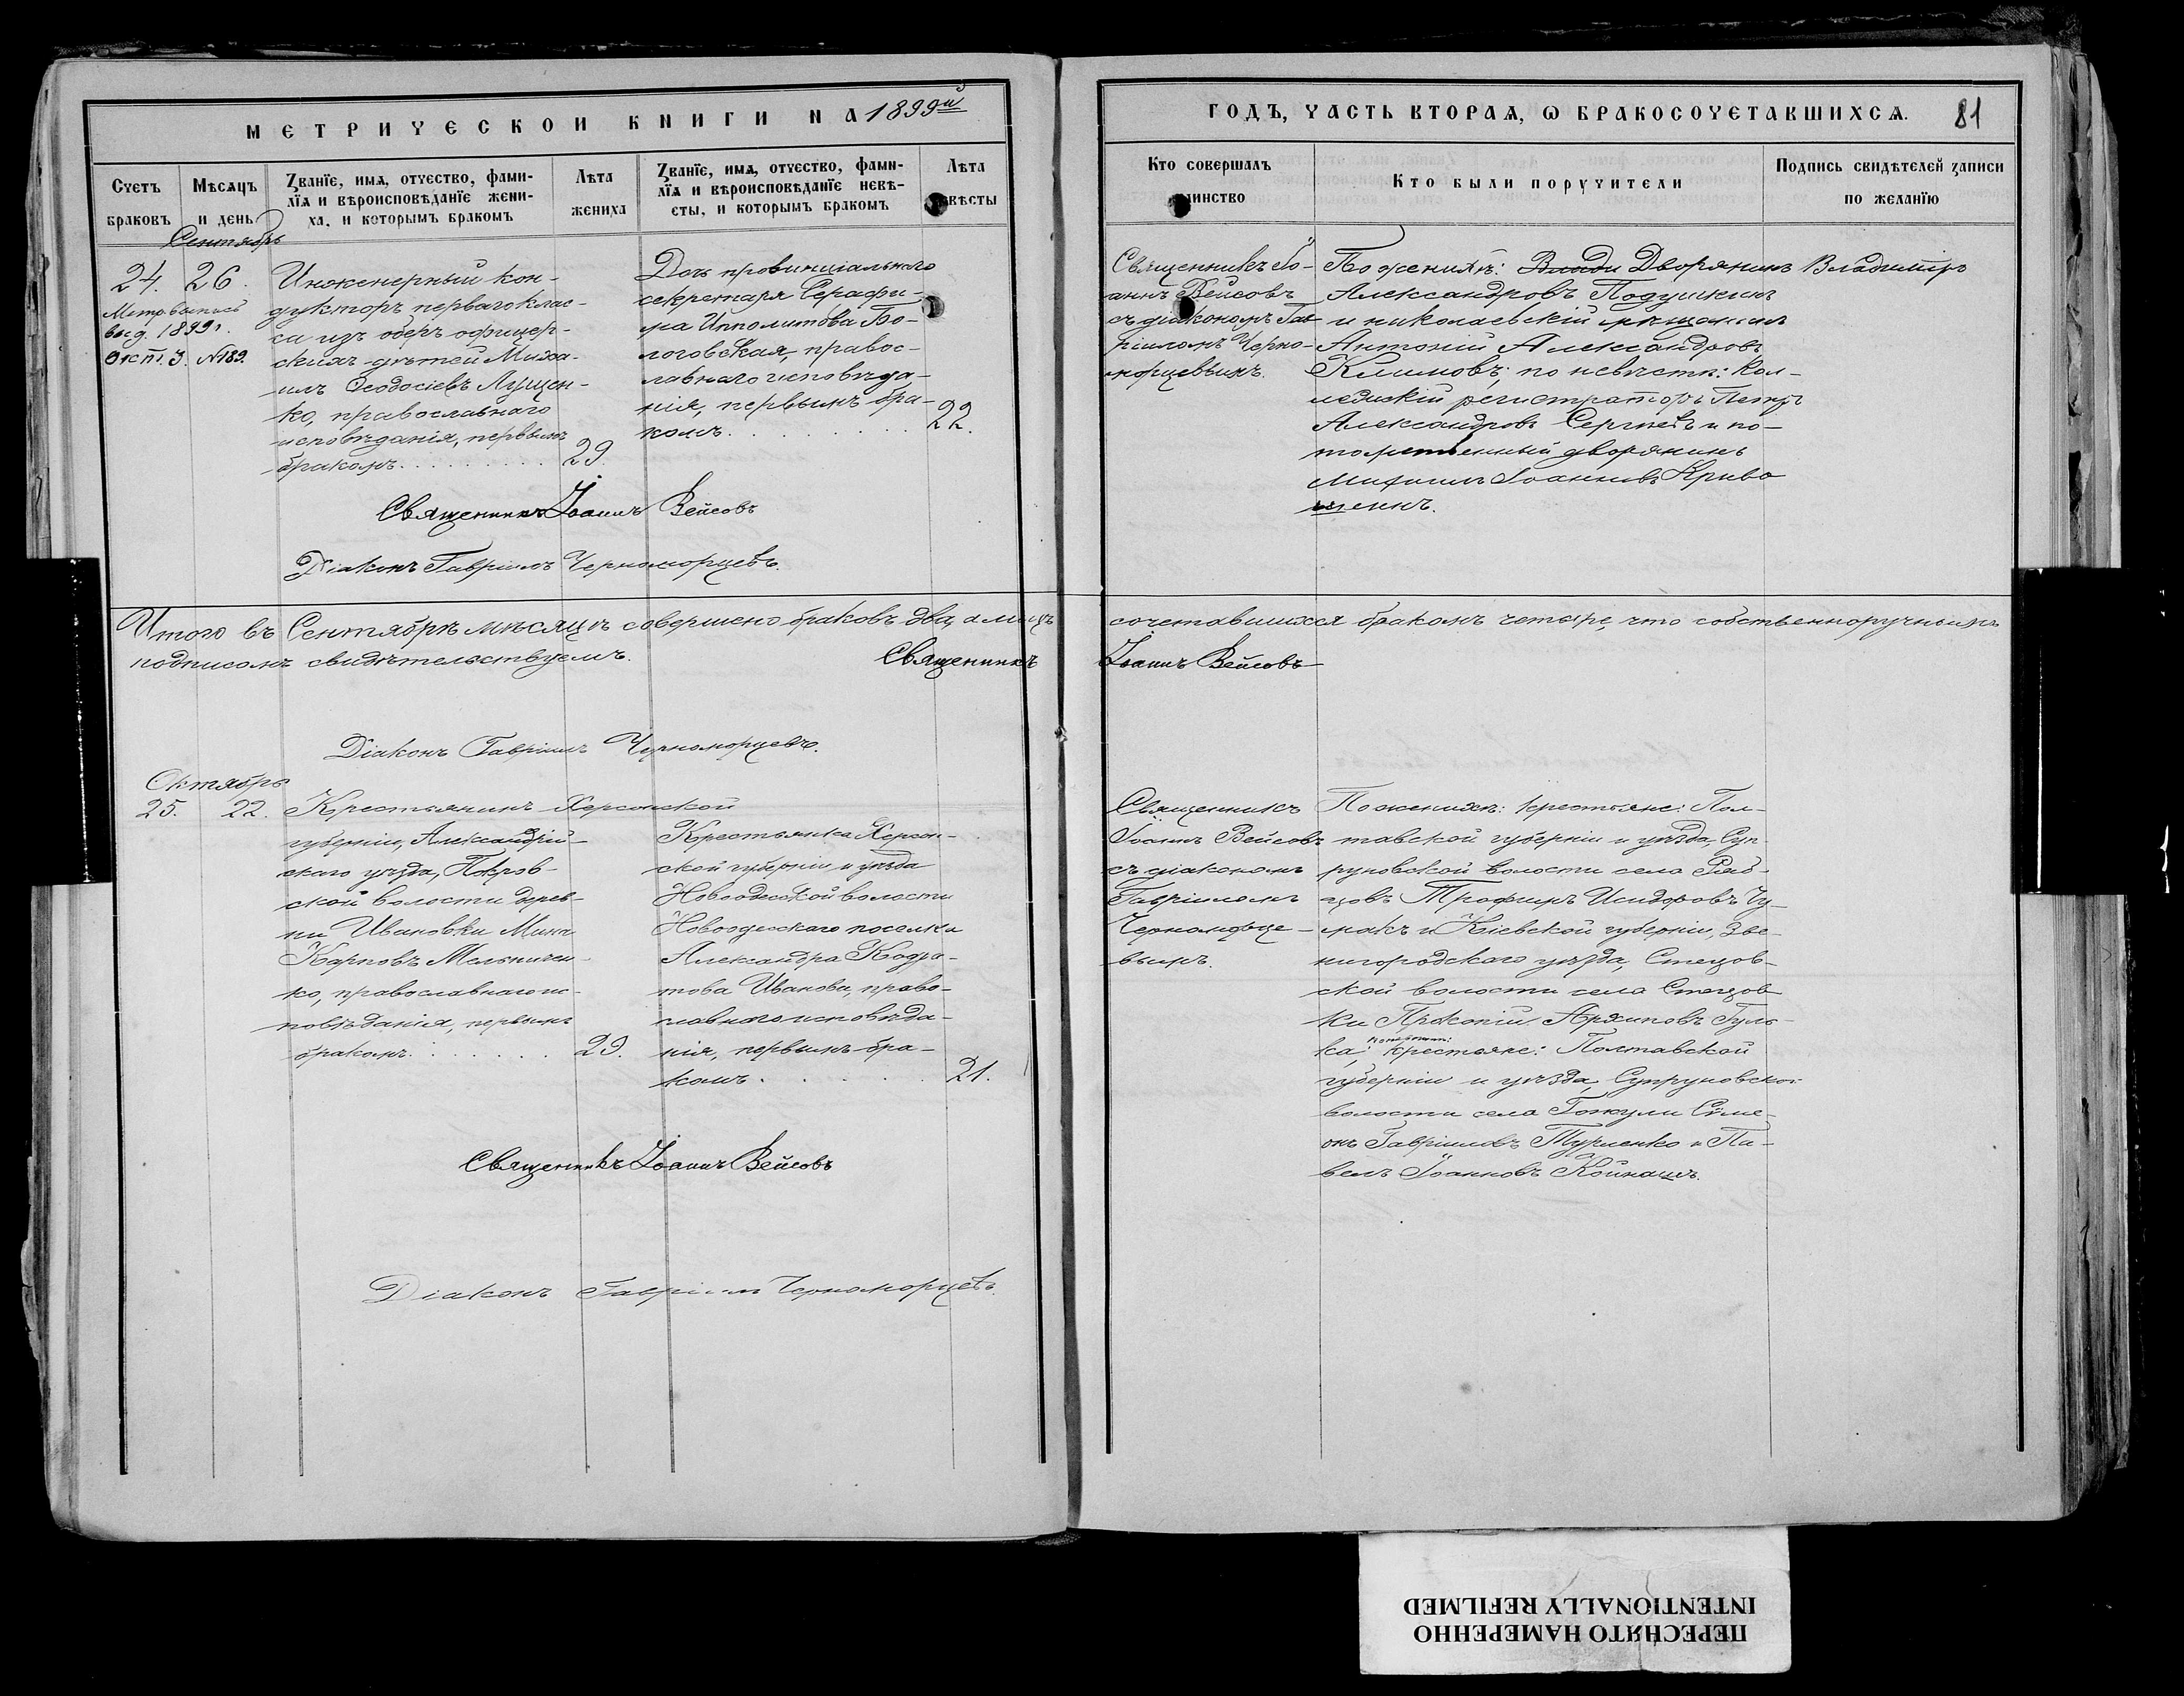 МЕТРИЧЕСКОЙ КНИГИ НА 1899й
ГОДЪ, ЧАСТЬ ВТОРАЯ, Ѡ БРАКОСОЧЕТАВШИХСѦ. 81
Счетъ браковъ
Мѣсяцъ и день
Званїе, имѧ, отчество, фами-
лїѧ и вѣроисповѣданїе жени-
ха, и которымъ бракомъ
Лѣта жениха
Званїе, имѧ, отчество, фами-
лїѧ и вѣроисповѣданїе невѣ-
сты, и которымъ бракомъ
Лѣта вѣсты
Кто совершалъ
инство
Кто были поручители
Подпись свидѣтелей записи
по желанїю
Сентябрь
24. 26.
Метр. выпись
выд. 1899 г.
Окт. 3. №189.
Инженерный кон-
дукторъ перваго клас-
са изъ оберъ офицер-
скихъ дѣтей Миха-
илъ Ѳеодосіевъ Луцен-
ко, православнаго
исповѣданія, первымъ
бракомъ. 29.
Дочь провинціальнаго
секретаря Серафи-
ма Ипполитова Бо-
логовская, правос-
лавнаго исповѣда-
нія, первымъ бра-
комъ. 22.
Священникъ Іо-
аннъ Вейсовъ
съ діакономъ Гав-
ріиломъ Черно-
морцевымъ.
По женихѣ: Влади Дворянинъ Владиміръ
Александровъ Подушкинъ
и николаевскій мѣщанинъ
Антоній Александровъ
Климовъ; по невѣстѣ: кол-
лежскій регистраторъ Петръ
Александровъ Сергѣевъ и по-
томственный дворянинъ
Михаилъ Іоанновъ Криво
шеинъ.
Священникъ Іоаннъ Вейсовъ
Діаконъ Гавріилъ Черноморцевъ.
Итого въ Сентябрѣ мѣсяцѣ совершено браковъ два, а лицъ сочетавшихся бракомъ четыре, что собственноручнымъ
подписомъ свидѣтельствуемъ. Священникъ Іоаннъ Вейсовъ
Діаконъ Гавріилъ Черноморцевъ.
Октябрь
25. 22.
Крестьянинъ Херсонской
губерніи, Александрій-
скаго уѣзда, Покров-
ской волости дерев-
ни Ивановки Мина
Карповъ Мельничен-
ко, православнаго ис-
повѣданія, первымъ
бракомъ. 29.
Крестьянка Херсон-
ской губерніи и уѣзда
Новоодесской волости
Новоодесскаго поселка
Александра Кодра-
това Иванова, право-
славнаго исповѣда-
нія, первымъ бра-
комъ. 21.
Священникъ
Іоаннъ Вейсовъ
съ діакономъ
Гавріиломъ
Черноморце-
вымъ.
По женихѣ: крестьяне: Пол-
тавской губерніи и уѣзда, Суп-
руновской волости села Ряб-
цовъ Трофимъ Исидоровъ Чу-
макъ и Кіевской губерніи, Зве-
нигородскаго уѣзда, Стецов-
ской волости села Стецов
ки Прокопій Архиповъ Гуль-
ка; по невѣстѣ: крестьяне: Полтавской
губерніи и уѣзда, Супруновской
волости села Гожули Симе-
онъ Гавріиловъ Турченко и Па-
велъ Іоанновъ Койнашъ.
Священникъ Іоаннъ Вейсовъ
Діаконъ Гавріилъ Черноморцевъ.
ПЕРЕСНЯТО НАМЕРЕННО
INTENTIONALLY REFILMED